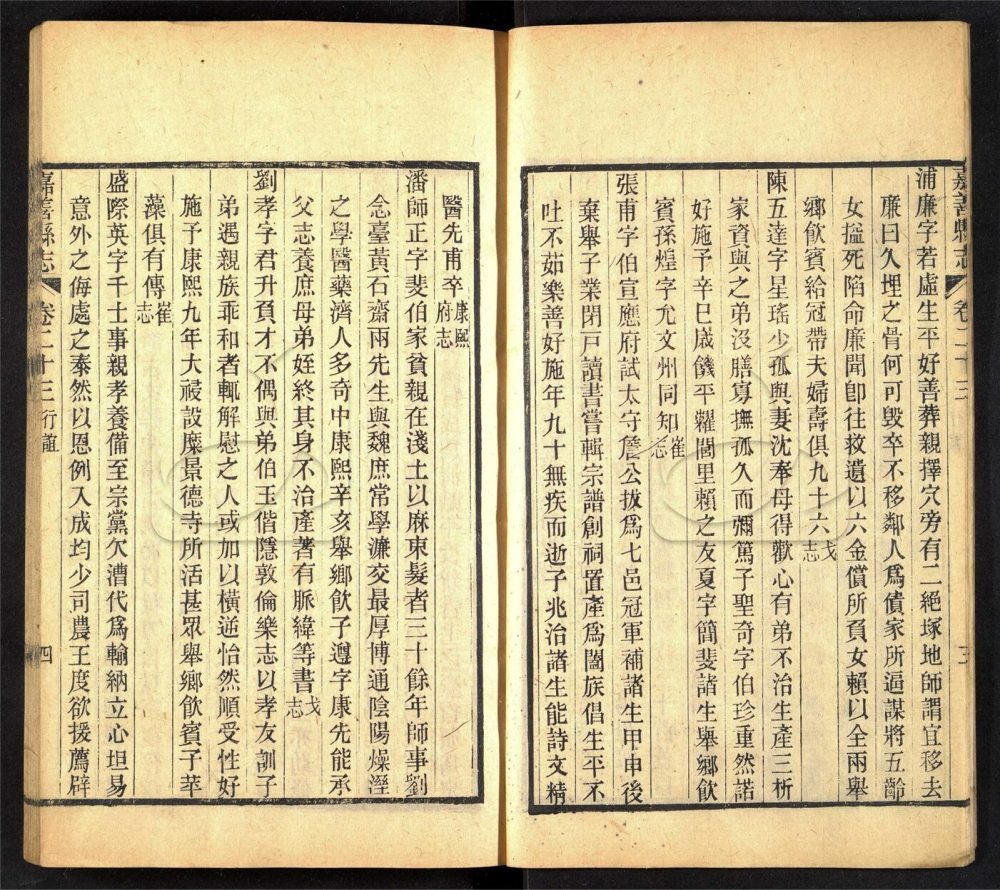 嘉善縣志 卷二十三 三
浦廉字若虛生平好善葬親擇穴旁有二絕塚地師謂宜移去
廉曰久埋之骨何可毀卒不移鄰人爲債家所逼謀將五齡
女搤死陷命廉聞卽往救遺以六金償所負女賴以全兩舉
鄉飲賓給冠帶夫婦壽俱九十六戈志
陳五達字星瑤少孤與妻沈奉母得歡心有弟不治生產三析
家資與之弟沒膳寡撫孤久而彌篤子聖奇字伯珍重然諾
好施予辛巳歲饑平糶閭里賴之友夏字簡斐諸生舉鄉飲
賓孫煌字允文州同知崔志
張甫字伯宣應府試太守詹公拔爲七邑冠軍補諸生甲申後
棄舉子業閉戸讀書嘗輯宗譜創祠置產爲闔族倡生平不
吐不茹樂善好施年九十無疾而逝子兆治諸生能詩文精
醫先甫卒康熙府志
潘師正字斐伯家貧親在淺土以麻束髮者三十餘年師事劉
念臺黃石齋兩先生與魏庶常學濂交最厚博通陰陽燥溼
之學醫藥濟人多奇中康熙辛亥舉鄉飲子遵字康先能承
父志養庶母弟姪終其身不治產著有脈緯等書戈志
劉孝字君升負才不偶與弟伯玉偕隱敦倫樂志以孝友訓子
弟遇親族乖和者輒解慰之人或加以橫逆怡然順受性好
施予康熙九年大祲設糜景德寺所活甚眾舉鄉飲賓子莘
藻俱有傳崔志
盛際英字千士事親孝養備至宗黨欠漕代爲輸納立心坦易
意外之侮處之泰然以恩例入成均少司農王度欲援薦辟
嘉善縣志 卷二十三 行誼 四